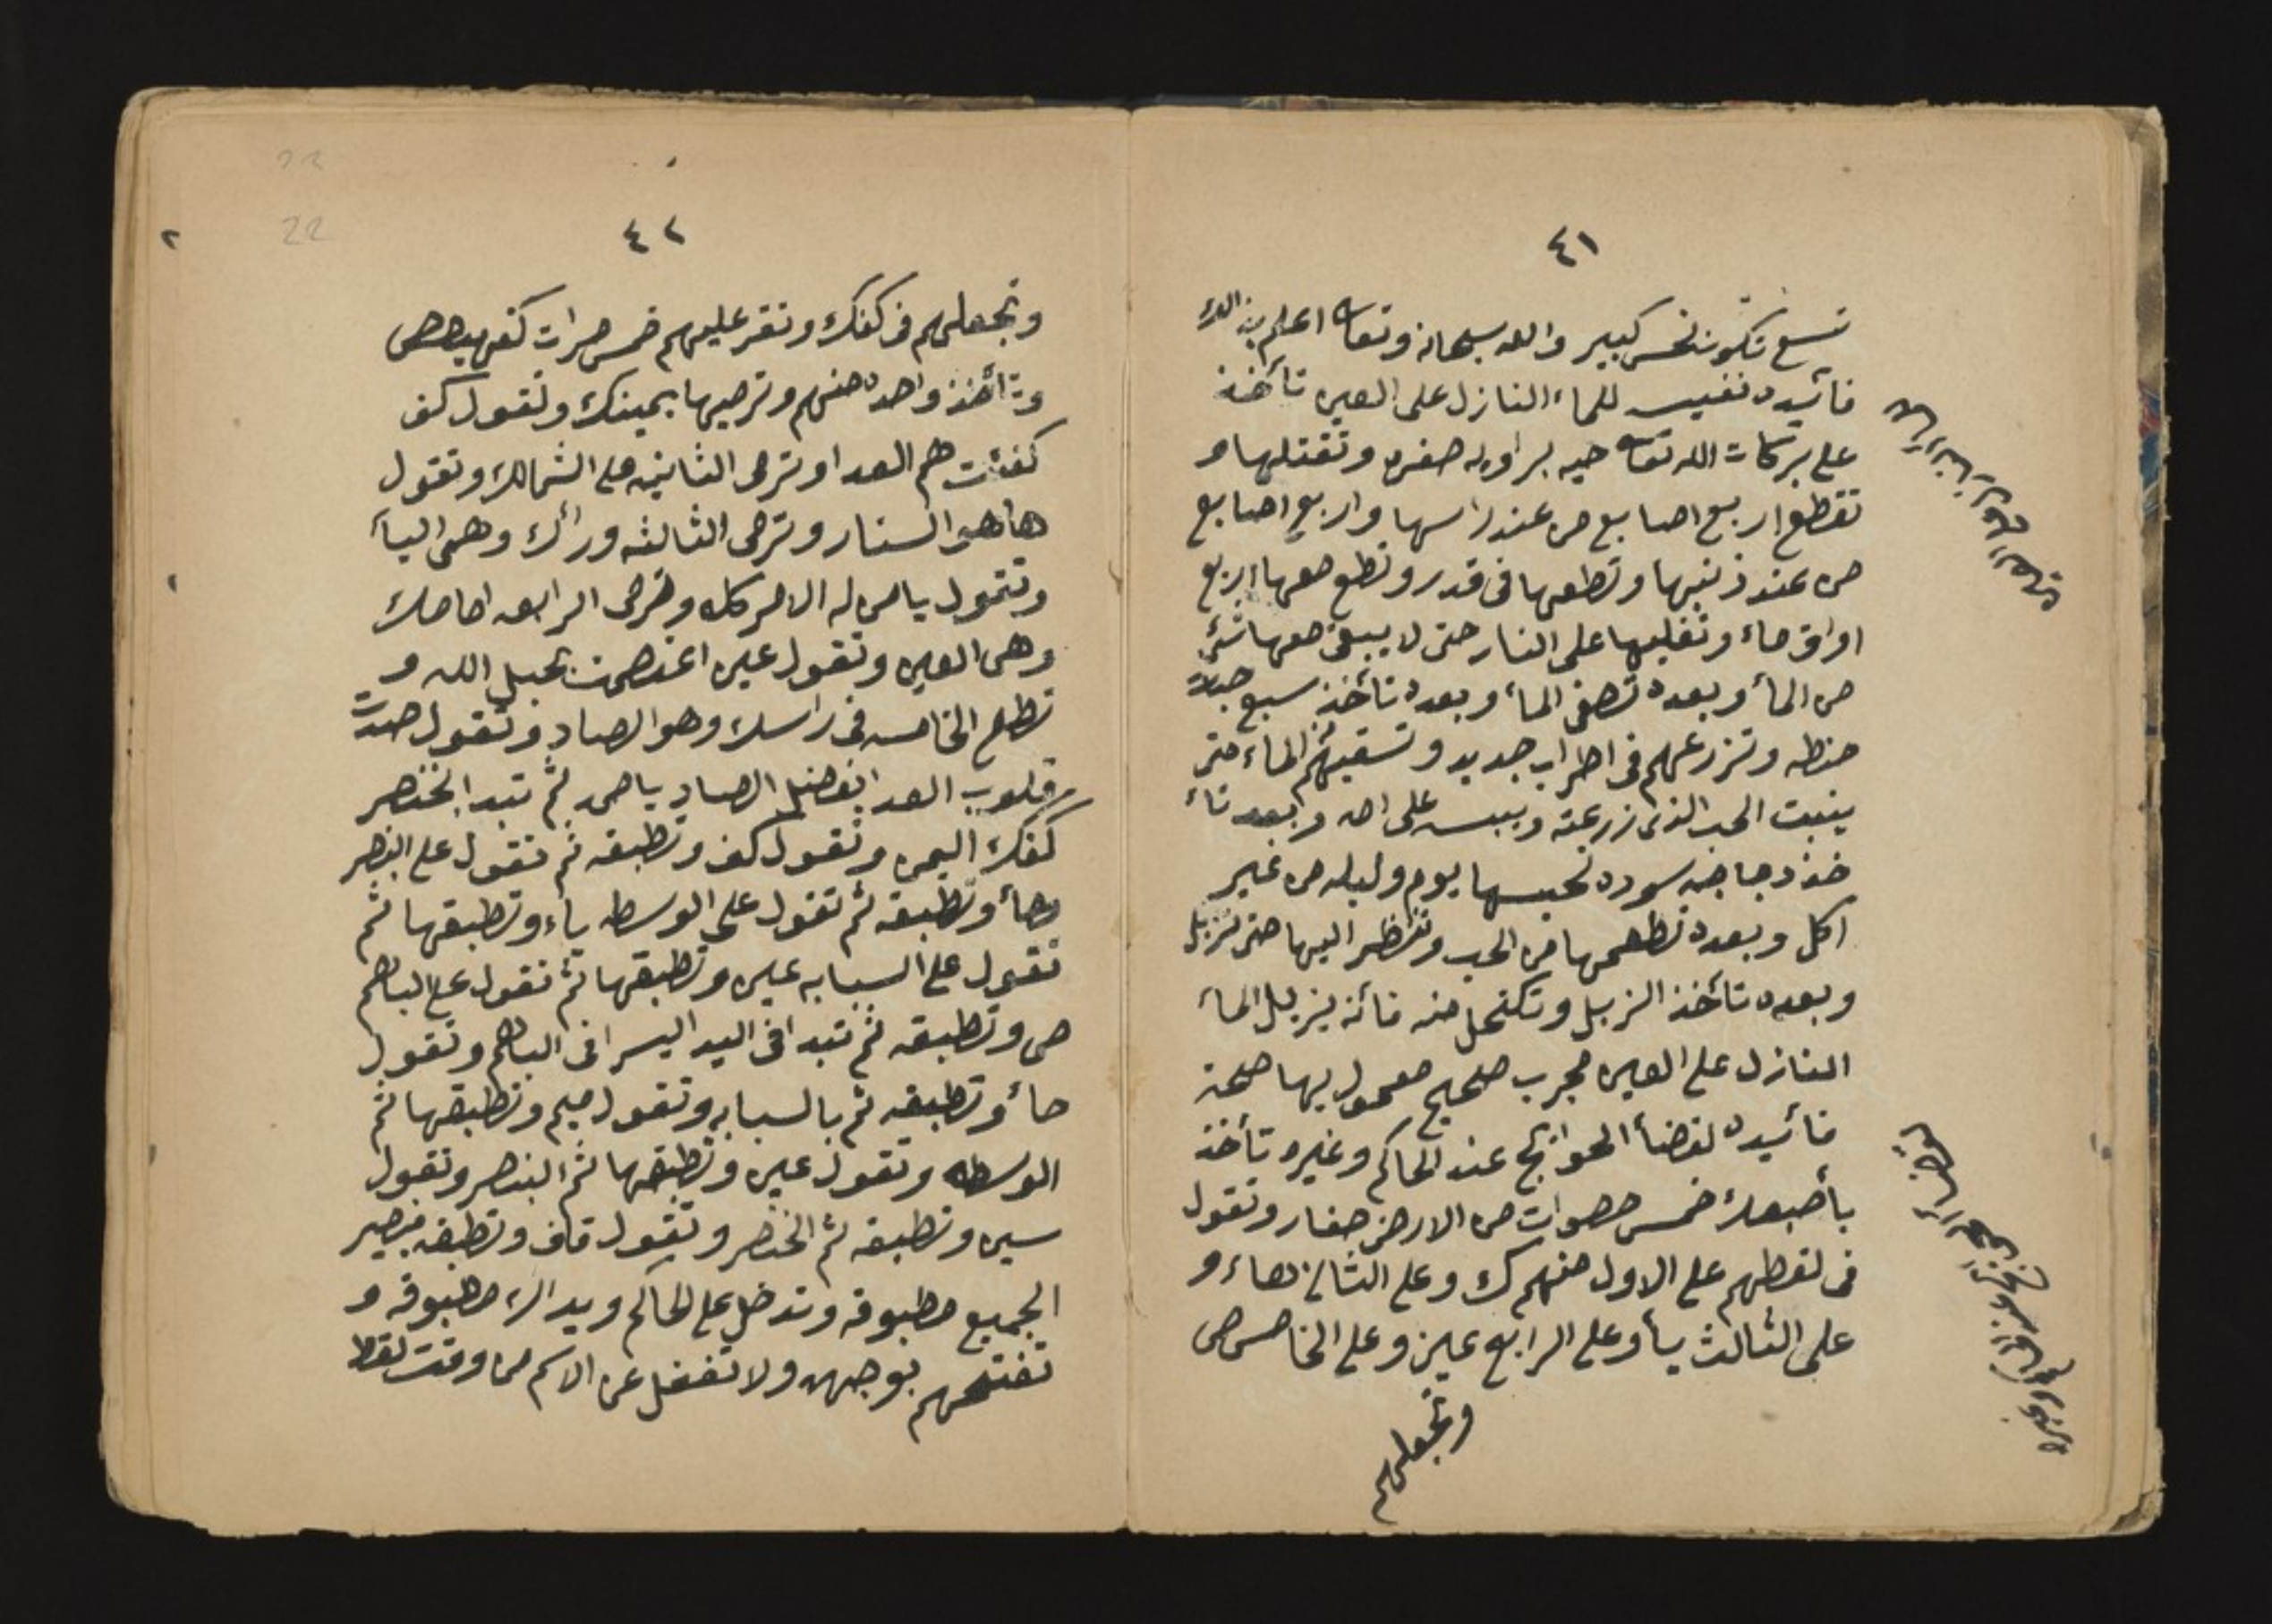 ٤١
تسع تكون نحس كبير والله سبحانه وتعا اعلم بذالك
فائيده نفيسه للماء النازل على العين تأخذ
على بركات الله تعا حيه براويه صفره وتقتلها و
تقطع اربع اصابع من عند راسها واربع اصابع
من عند ذنبها وتطعها فى قدر وتطع معها اربع
اواق ماء وتغليها على النار حتى لا يبقى معها شئ
من المأ وبعده تصفى المأ وبعده تأخذ سبع حبات
حنطه وتزرعهم فى اطراب جديد وتسقيهم الماء حتى
ينبت الحب الذى زرعته وييبس على امه وبعد تأ
خذ دجاجه سوده تحبسها يوم وليله من غير
اكل وبعده تطعمها من الحب وتنظر اليها حتى تزبل
وبعده تأخذ الزبل وتكتحل منه فأنه يزيل المأ
النازل على العين مجرب صحيح معمول بها صحة
فائيده لقضأ الحوائج عند الحاكم وغيره تأخذ
بأصبعك خمس حصوات من الارض صغار وتقول
فى لقطهم على الاول منهم ك وعلى الثانى هاء و
على الثالث يأ وعلى الرابع عين وعلى الخامس ص
وتجعلهم
لقضاء الحوائج
٤٢
وتجعلهم فى كفك وتقر عليهم خمس مرات كهيعص
وتأخذ واحده منهم وترميها بيمينك وتقول كف
كفئت هم العدا وترمى الثانيه على الشمالك وتقول
ها هو الستار وترمى الثالثه ورأك وهى اليأ
وتقول يا من له الامر كله وترمى الرابعه امامك
وهى العين وتقول عين اعتصمت بحبل الله و
تطلع الخامسه فى راسك وهو الصاد وتقول صدت
قلوب العدا بفضل الصاد يا صمد ثم تبدا بخنصر
كفك اليمن وتقول كف وتطبقه ثم تقول على البنصر
هأ وتطبقه ثم تقول على الوسطه ياء وتطبقها ثم
تقول على السبابه عين وتطبقها ثم تقول على الباهم
ص وتطبقه ثم تبدا فى اليد اليسرا فى الباهم وتقول
حأ وتطبقه ثم بالسبابه وتقول ميم وتطبقها ثم
الوسطه وتقول عين وتطبقها ثم البنصر وتقول
سين وتطبقه ثم الخنصر وتقول قاف وتطبقه فيصير
الجميع مطبوقه وتدخل على الحاكم ويداك مطبوقه و
تفتحهم بوجهه ولا تغفل عن الاسم من وقت لقط
22
22